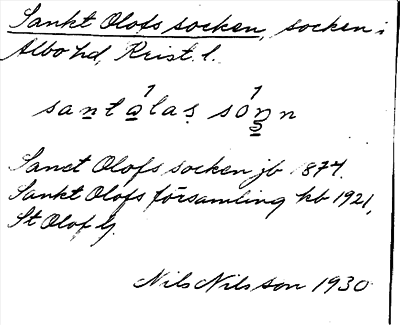 Sankt Olofs socken, socken i
Albo hd, Krist. l.
santalas son
Sanct Olofs socken jb 1877.
Sankt Olofs församling kb 1921,
St Olof
Nils Nilsson 1930